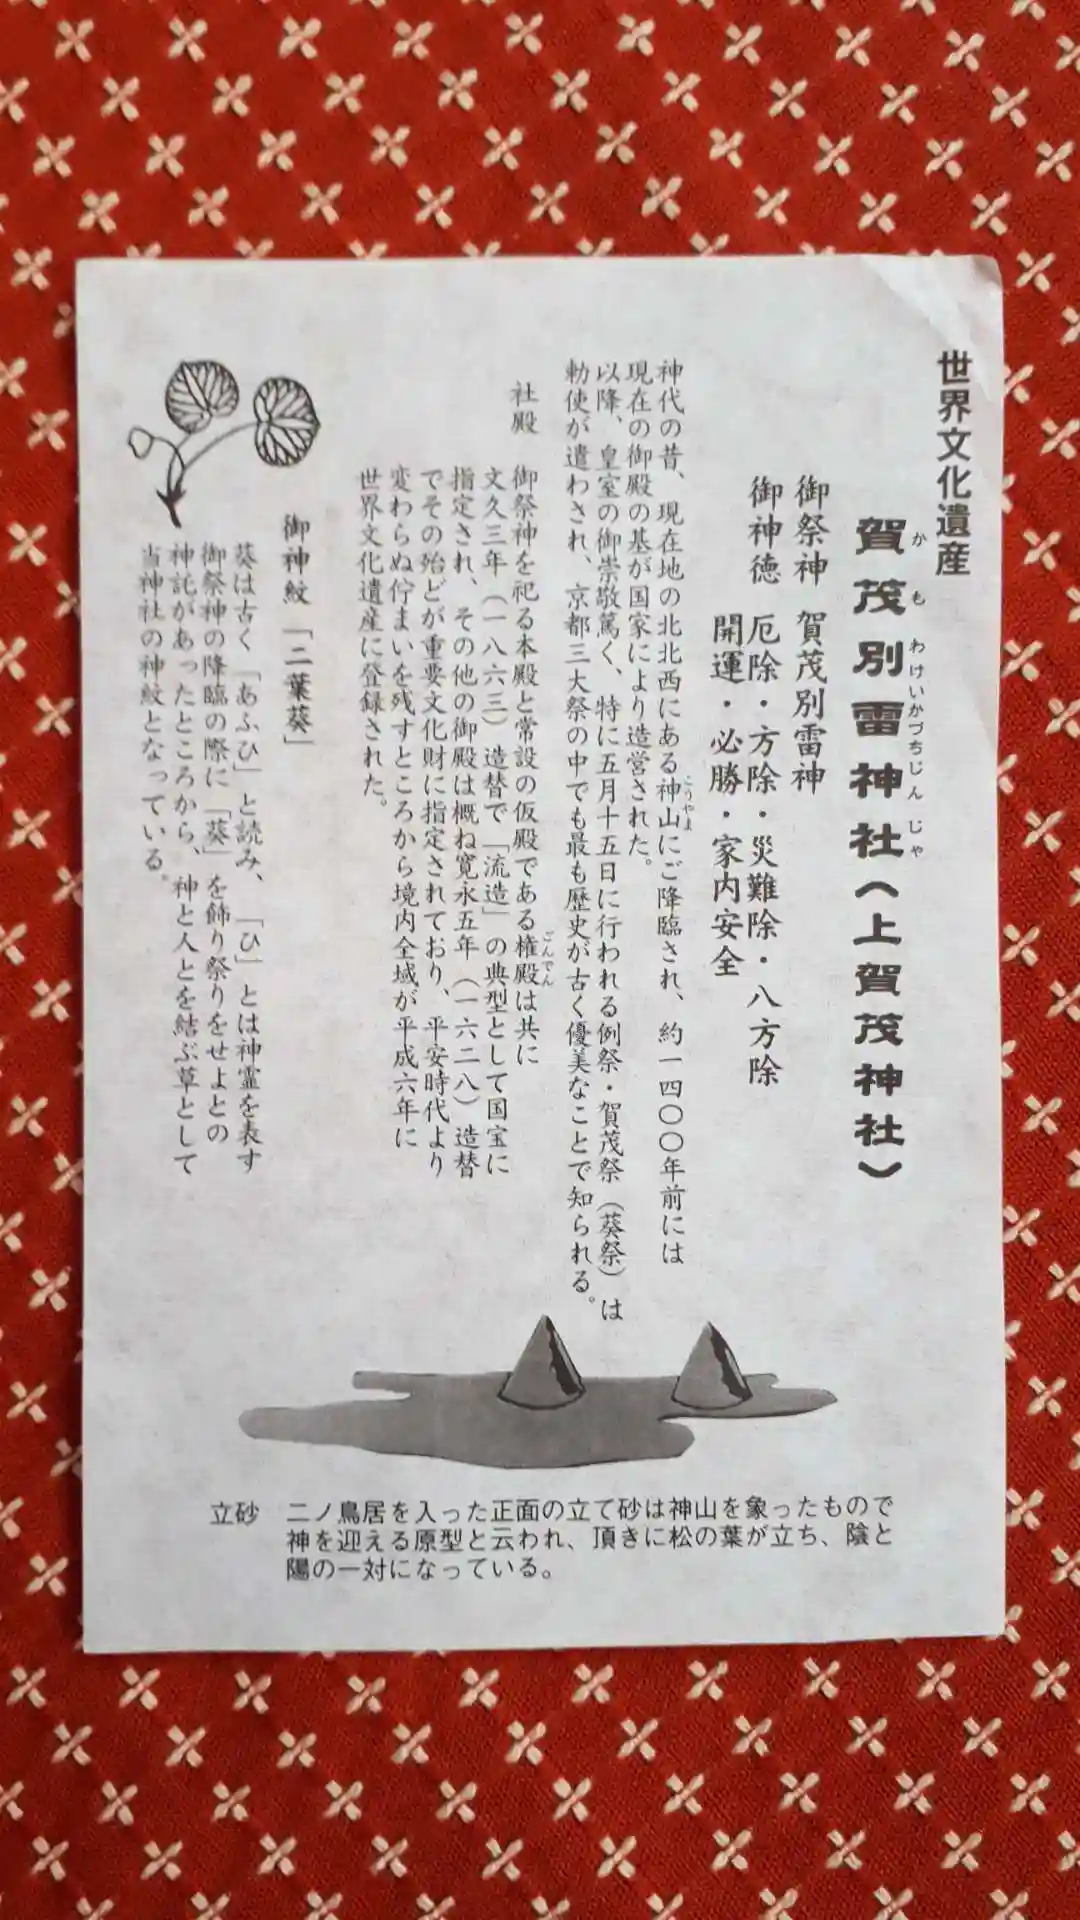 世界文化遺産
賀茂別雷神社（上賀茂神社）
か も わけいかづちじん じゃ
御祭神 賀茂別雷神
御神徳 厄除・方除・災難除・八方除
開運・必勝・家内安全
神代の昔、現在地の北北西にある神山にご降臨され、約一四〇〇年前には
こうやま
現在の御殿の基が国家により造営された。
以降、皇室の御崇敬篤く、特に五月十五日に行われる例祭・賀茂祭（葵祭）は
勅使が遣わされ、京都三大祭の中でも最も歴史が古く優美なことで知られる。
社殿 御祭神を祀る本殿と常設の仮殿である権殿は共に
ごんでん
文久三年（一八六三）造替で「流造」の典型として国宝に
指定され、その他の御殿は概ね寛永五年（一六二八）造替
でその殆どが重要文化財に指定されており、平安時代より
変わらぬ佇まいを残すところから境内全域が平成六年に
世界文化遺産に登録された。
御神紋「二葉葵」
葵は古く「あふひ」と読み、「ひ」とは神霊を表す
御祭神の降臨の際に「葵」を飾り祭りをせよとの
神託があったところから、神と人とを結ぶ草として
当神社の神紋となっている。
立砂 二ノ鳥居を入った正面の立て砂は神山を象ったもので
神を迎える原型と云われ、頂きに松の葉が立ち、陰と
陽の一対になっている。